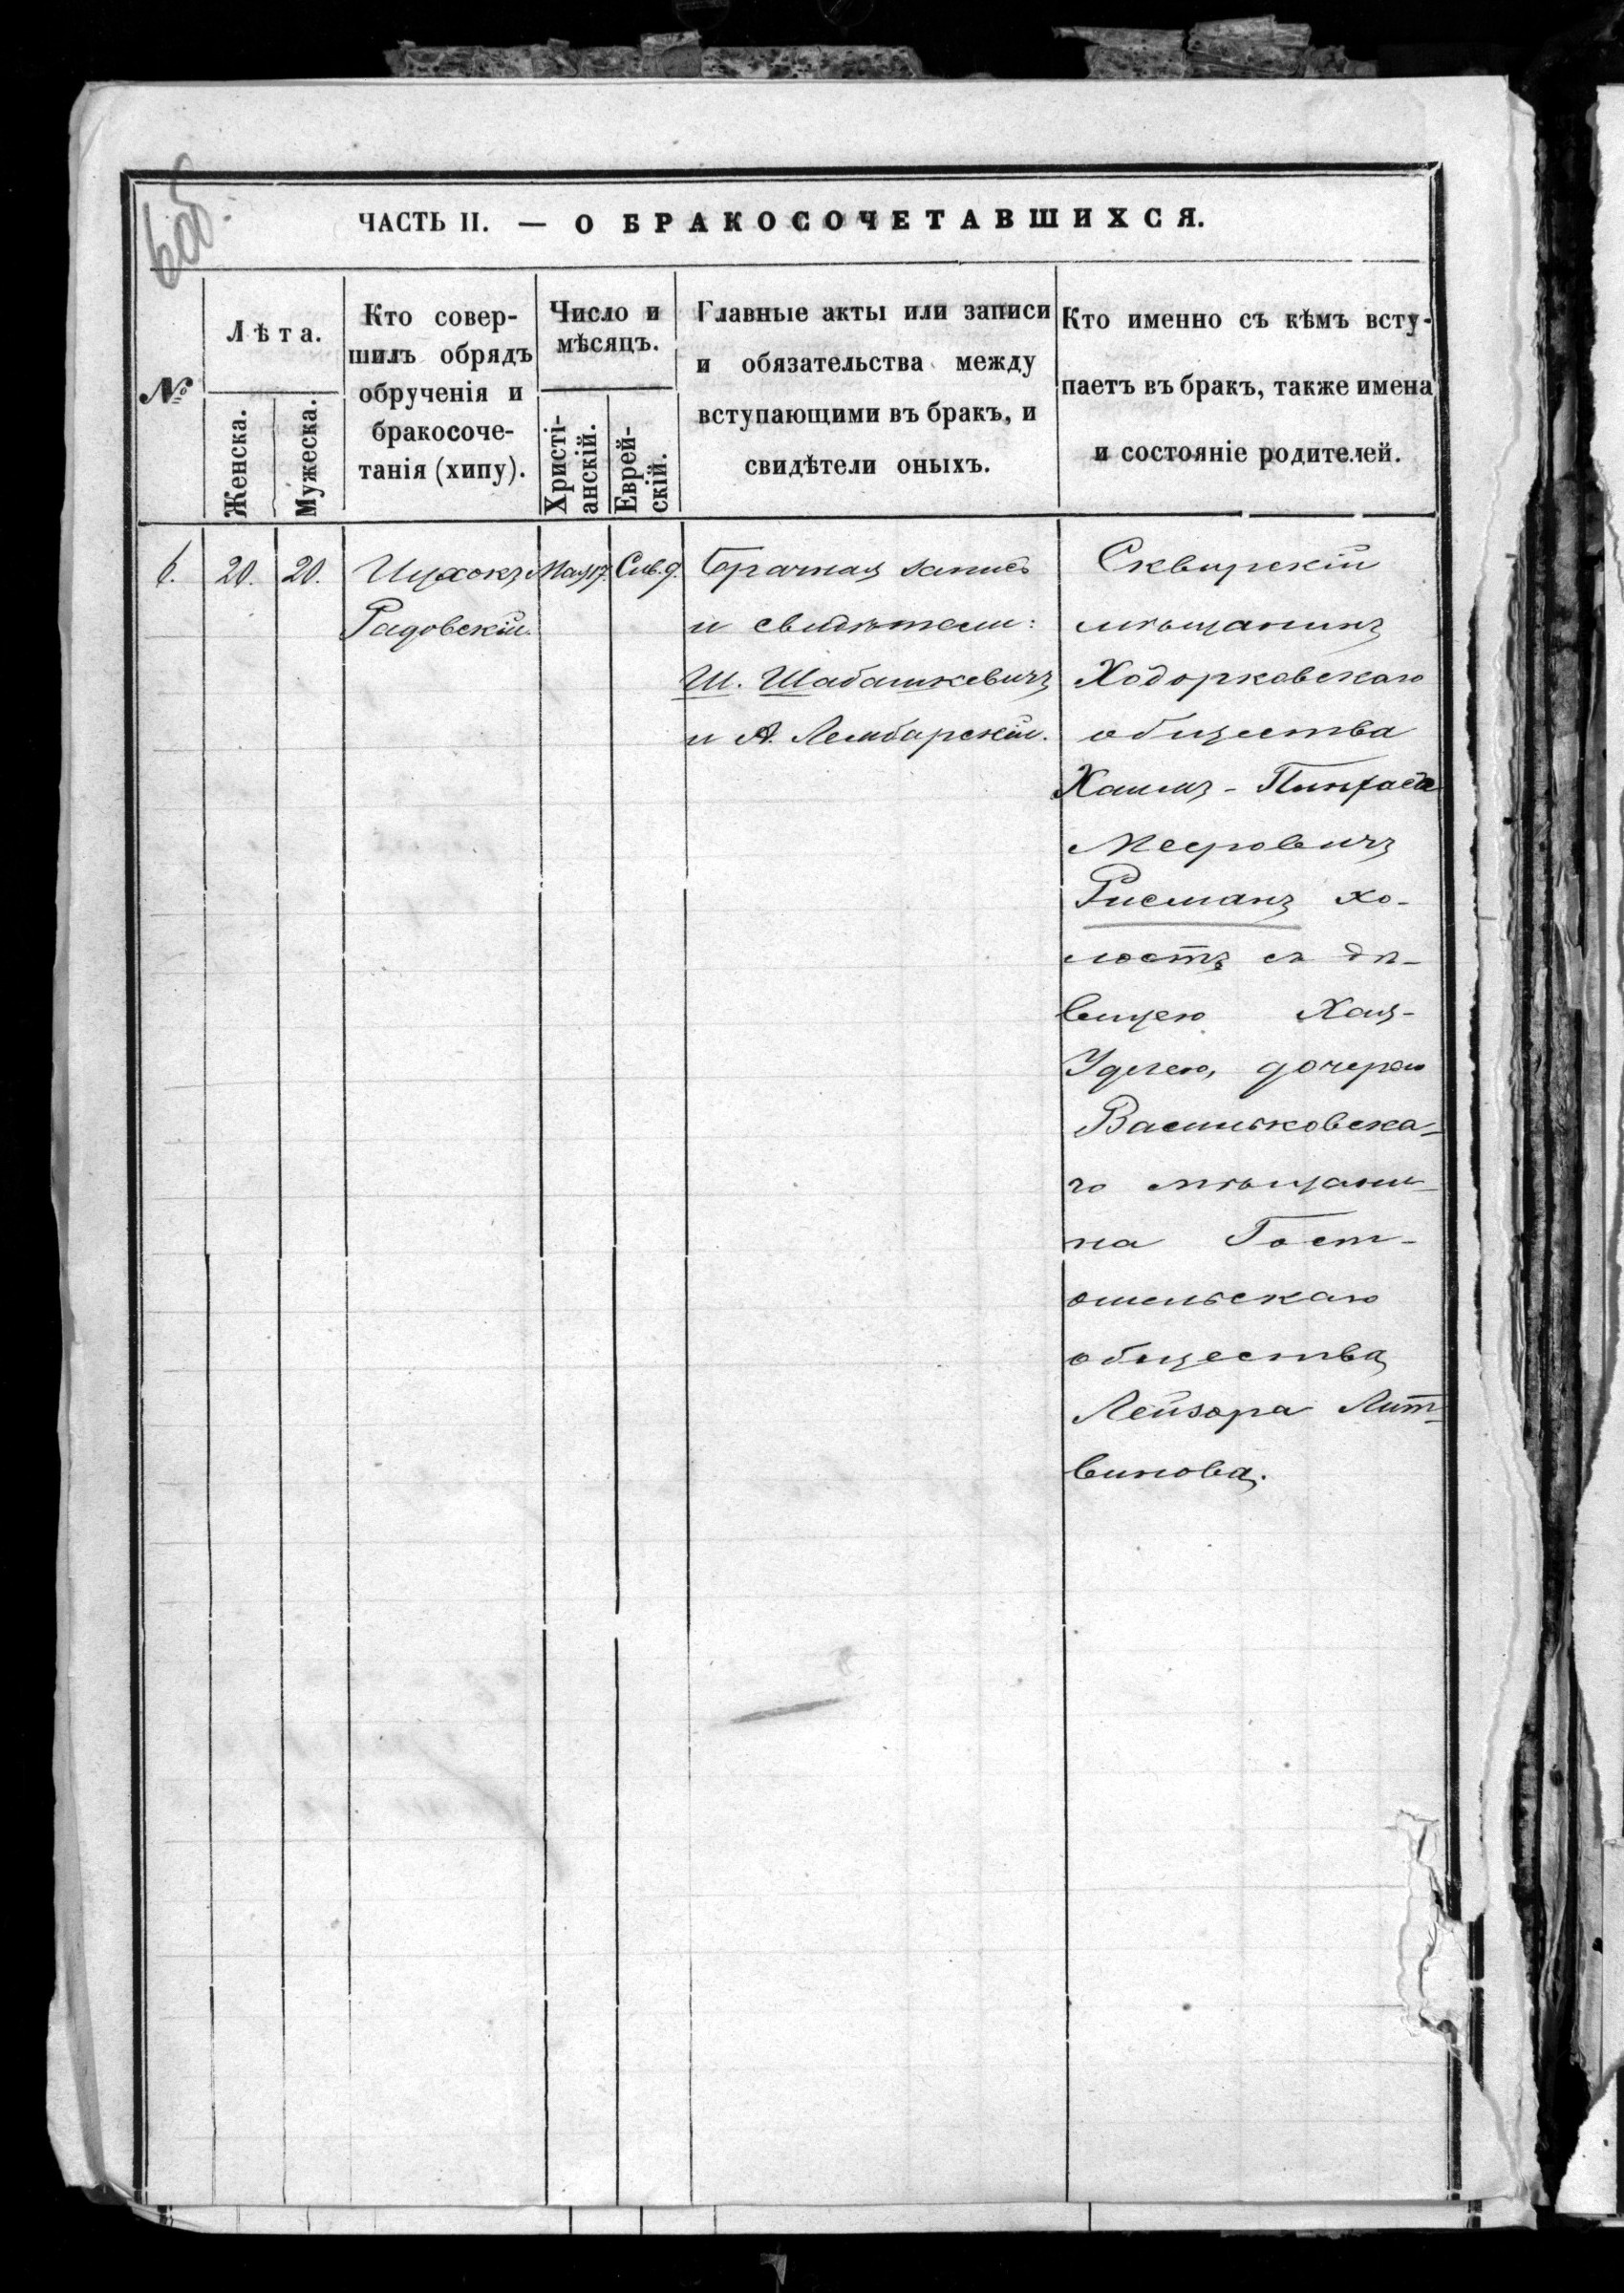 6об.
ЧАСТЬ II. — О БРАКОСОЧЕТАВШИХСЯ.
№
Лѣта.
Женска.
Мужеска.
Кто совер-
шилъ обрядъ
обрученія и
бракосоче-
танія (хипу).
Число и
мѣсяцъ.
Христі-
анскій.
Еврей-
скій.
Главные акты или записи
и обязательства между
вступающими въ бракъ, и
свидѣтели оныхъ.
Кто именно съ кѣмъ всту-
паетъ въ бракъ, также имена
и состояніе родителей.
6.
20.
20.
Ицхокъ
Радовскій.
Мая 17.
Сив. 9.
Брачная запись
и свидѣтели:
Ш. Шабашкевичъ
и А. Лембарскій.
Сквирскій
мѣщанинъ
Ходорковскаго
общества
Хаимъ - Пинхасъ
Мееровичъ
Рисманъ хо-
лостъ съ дѣ-
вицею Хая-
Удлею, дочерью
Васильковска-
го мѣщани-
на Гост-
омельскаго
общества
Лейзора Лит-
винова.